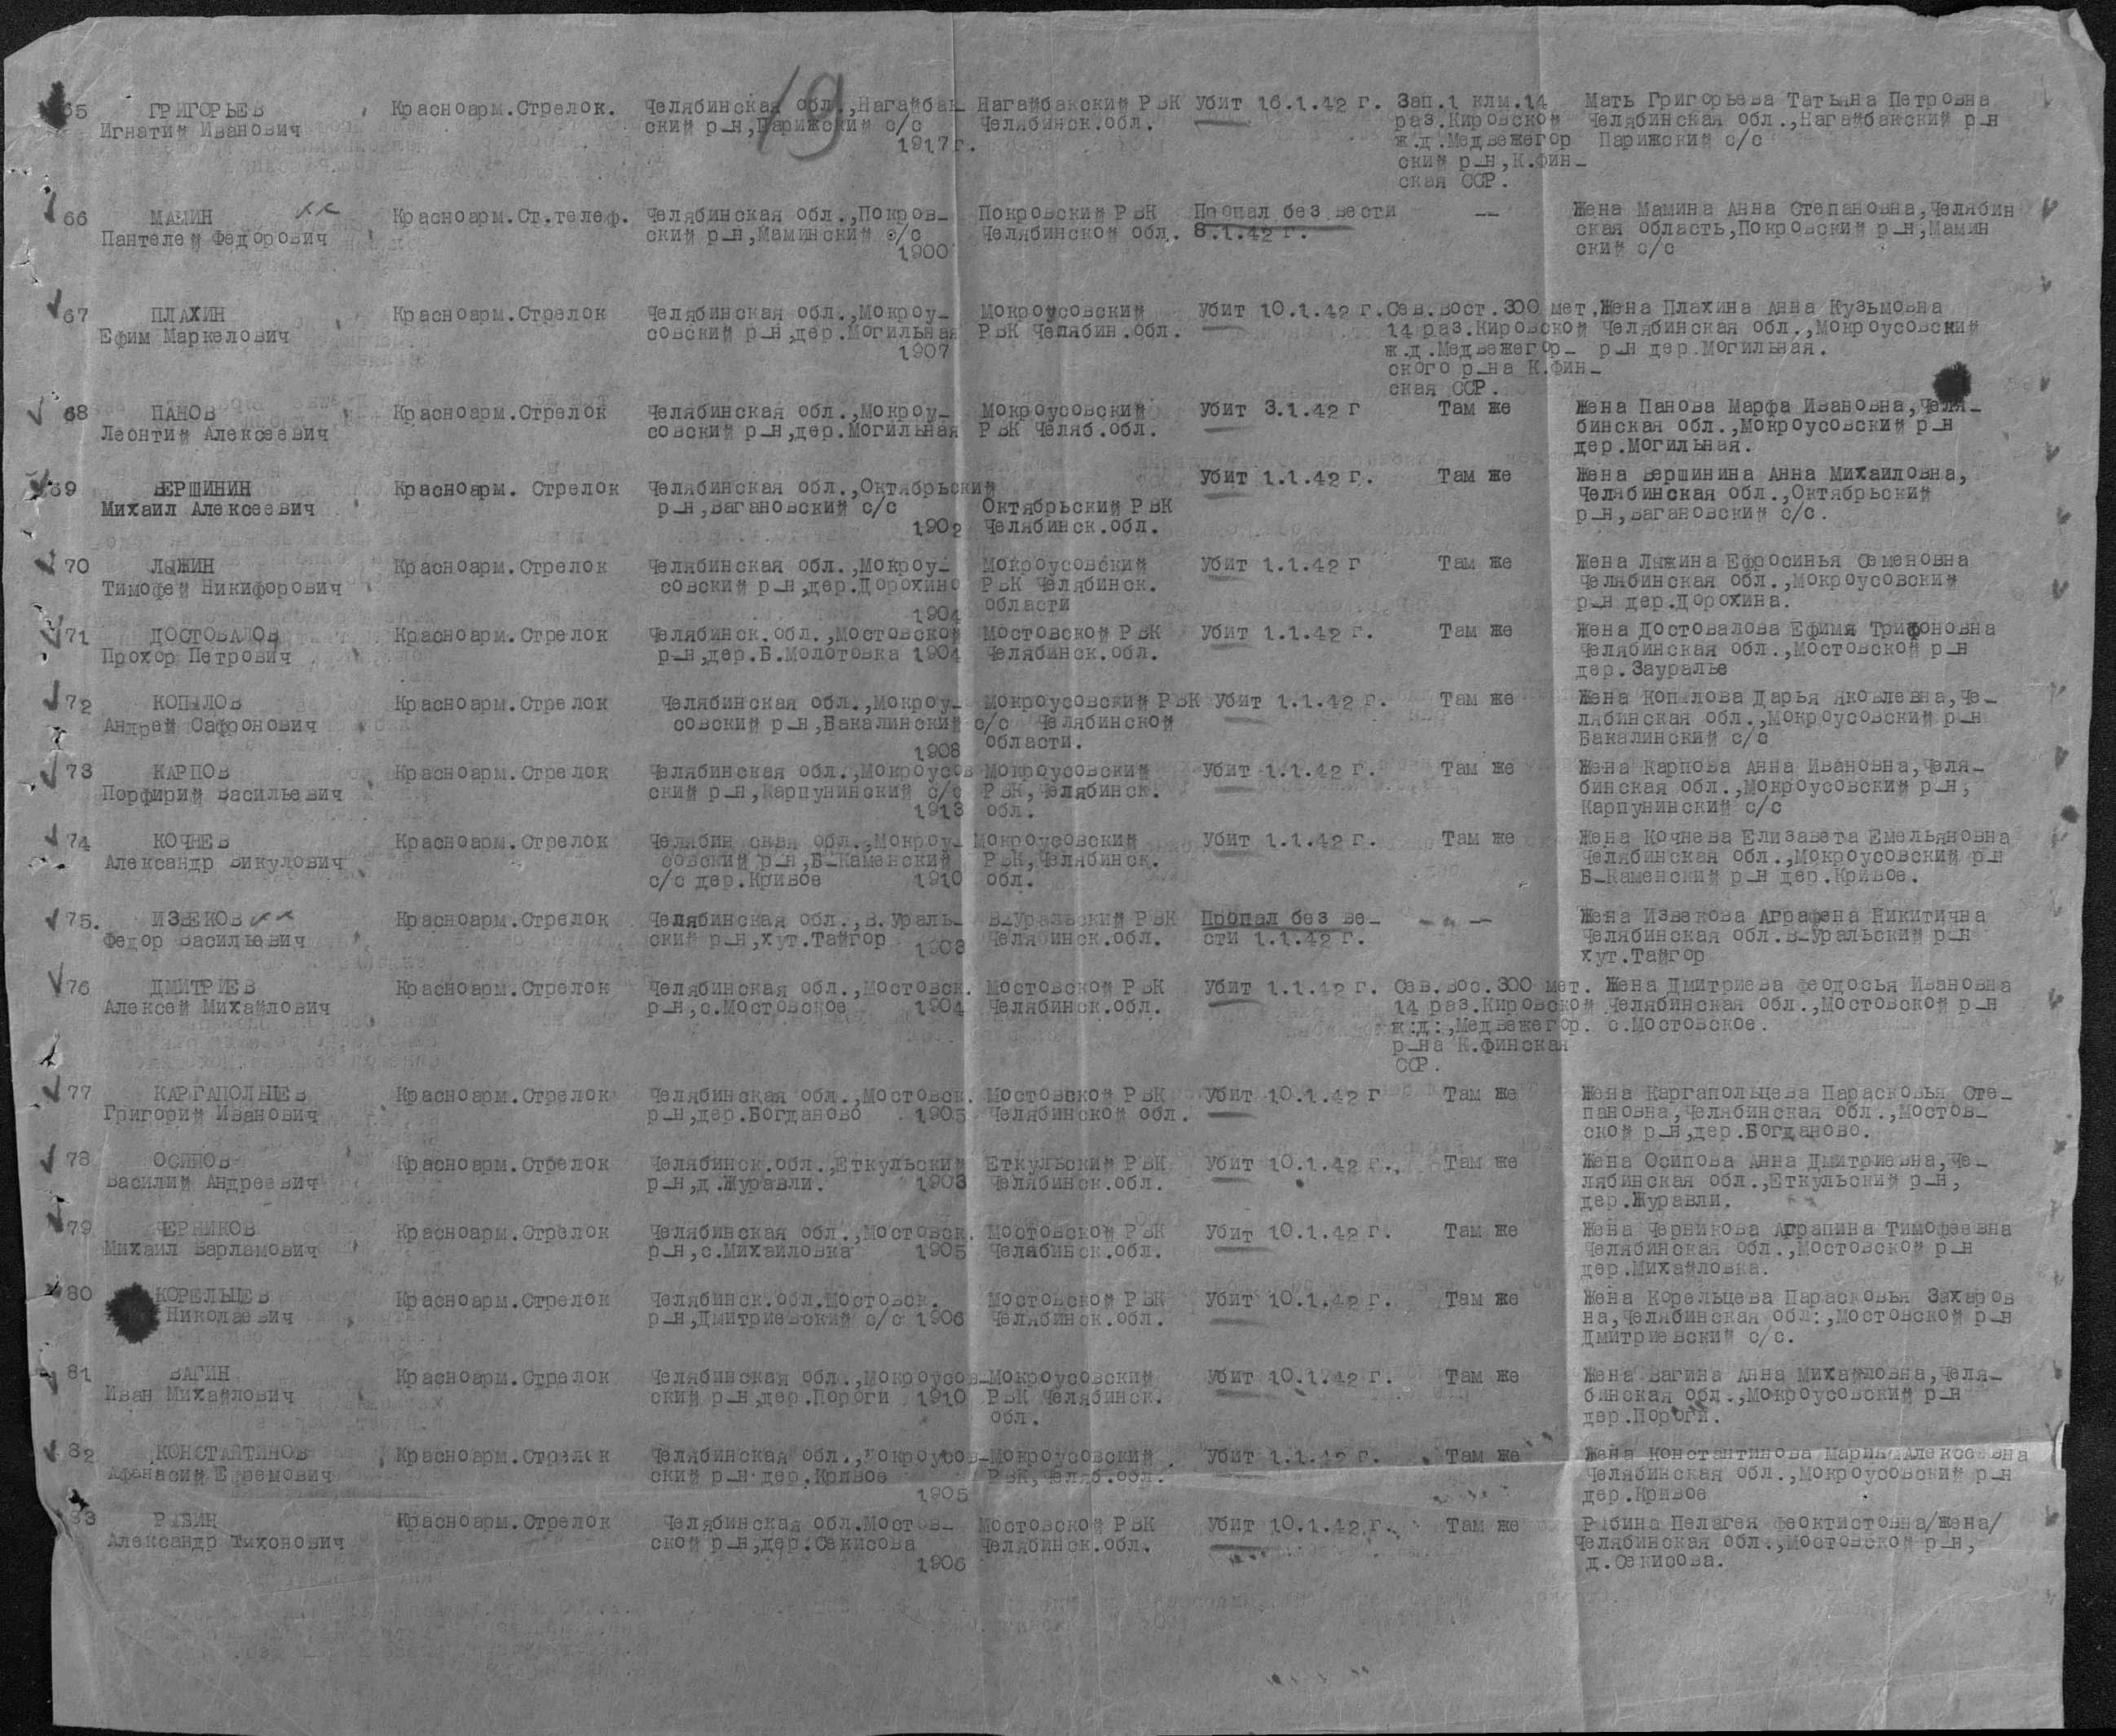 19
65 ГРИГОРЬЕВ Красноарм.Стрелок. Челябинская обл.,Нагайбак- Нагайбакский РВК Убит 16.1.42 г. Зап.1 клм.14 Мать Григорьева Татьяна Петровна
Игнатий Иванович ский р-н,Парижский с/с Челябинск.обл. раз.Кировской Челябинская обл.,Нагайбакский р-н
1917г. ж.д.Медвежегор Парижский с/с
ский р-н,К.фин-
ская ССР.
66 МАМИН Красноарм.Ст.телеф. Челябинская обл.,Покров- Покровский РВК Пропал без вести -- Жена Мамина Анна Степановна,Челябин
Пантелей Федорович ский р-н,Маминский с/с Челябинской обл. 8.1.42 г. ская область,Покровский р-н,Мамин
1900 ский с/с
67 ПЛАХИН Красноарм.Стрелок Челябинская обл.,Мокроу- Мокроусовский Убит 10.1.42 г. Сев.вост.300 мет. Жена Плахина Анна Кузьмовна
Ефим Маркелович совский р-н,дер.Могильная РВК Челябин.обл. 14 раз.Кировской Челябинская обл.,Мокроусовский
1907 ж.д.Медвежегор- р-н дер.Могильная.
ского р-на К.фин-
ская ССР.
68 ПАНОВ Красноарм.Стрелок Челябинская обл.,Мокроу- Мокроусовский Убит 3.1.42 г Там же Жена Панова Марфа Ивановна,Челя-
Леонтий Алексеевич совский р-н,дер.Могильная РВК Челяб.обл. бинская обл.,Мокроусовский р-н
дер.Могильная.
69 ВЕРШИНИН Красноарм. Стрелок Челябинская обл.,Октябрьский Убит 1.1.42 г. Там же Жена Вершинина Анна Михаиловна,
Михаил Алексеевич р-н,Вагановский с/с Октябрьский РВК Челябинская обл.,Октябрьский
1902 Челябинск.обл. р-н,Вагановский с/с.
70 ЛЫЖИН Красноарм.Стрелок Челябинская обл.,Мокроу- Мокроусовский Убит 1.1.42 г Там же Жена Лыжина Ефросинья Семеновна
Тимофей Никифорович совский р-н,дер.Дорохино РВК Челябинск. Челябинская обл.,Мокроусовский
1904 области р-н дер.Дорохина.
71 ДОСТОВАЛОВ Красноарм.Стрелок Челябинск.обл.,Мостовской Мостовской РВК Убит 1.1.42 г. Там же Жена Достовалова Ефимя Трифоновна
Прохор Петрович р-н,дер.Б.Молотовка 1904 Челябинск.обл. Челябинская обл.,Мостовской р-н
дер.Зауралье
72 КОПЫЛОВ Красноарм.Стрелок Челябинская обл.,Мокроу- Мокроусовский РВК Убит 1.1.42 г. Там же Жена Копылова Дарья Яковлевна,Че-
Андрей Сафронович совский р-н,Бакалинский с/с Челябинской лябинская обл.,Мокроусовский р-н
1908 области. Бакалинский с/с
73 КАРПОВ Красноарм.Стрелок Челябинская обл.,Мокроусов Мокроусовский Убит 1.1.42 г. Там же Жена Карпова Анна Ивановна,Челя-
Порфирий Васильевич ский р-н,Карпунинский с/с РВК,Челябинск. бинская обл.,Мокроусовский р-н,
1913 обл. Карпунинский с/с
74 КОЧНЕВ Красноарм.Стрелок Челябин ская обл.,Мокроу- Мокроусовский Убит 1.1.42 г. Там же Жена Кочнева Елизавета Емельяновна
Александр Викулович совский р-н,Б-Каменский РВК,Челябинск. Челябинская обл.,Мокроусовский р-н
с/с дер.Кривое 1910 обл. Б-Каменский р-н дер.Кривое.
75. ИЗВЕКОВ Красноарм.Стрелок Челябинская обл.,В.Ураль- В-Уральский РВК Пропал без ве- -"- Жена Извекова Аграфена Никитична
Федор Васильевич ский р-н,хут.Тайгор 1903 Челябинск.обл. сти 1.1.42 г. Челябинская обл.В-Уральский р-н
хут.Тайгор
76 ДМИТРИЕВ Красноарм.Стрелок Челябинская обл.,Мостовск. Мостовской РВК Убит 1.1.42 г. Сев.вос.300 мет. Жена Дмитриева Феодосья Ивановна
Алексей Михайлович р-н,с.Мостовское 1904 Челябинск.обл. 14 раз.Кировской Челябинская обл.,Мостовской р-н
ж:д:,Медвежегор. с.Мостовское.
р-на К.финская
ССР.
77 КАРГАПОЛЬЦЕВ Красноарм.Стрелок Челябинская обл.,Мостовск. Мостовской РВК Убит 10.1.42 г Там же Жена Каргапольцева Парасковья Сте-
Григорий Иванович р-н,дер.Богданово 1905 Челябинской обл. пановна,Челябинская обл.,Мостов-
ской р-н,дер.Богданово.
78 ОСИПОВ Красноарм.Стрелок Челябинск.обл.,Еткульский Еткульский РВК Убит 10.1.42 г. Там же Жена Осипова Анна Дмитриевна,Че-
Василий Андреевич р-н,д.Журавли. 1903 Челябинск.обл. лябинская обл.,Еткульский р-н,
дер.Журавли.
79 ЧЕРНИКОВ Красноарм.Стрелок Челябинская обл.,Мостовск. Мостовской РВК Убит 10.1.42 г. Там же Жена Черникова Аграпина Тимофеевна
Михаил Варламович р-н,с.Михайловка 1905 Челябинск.обл. Челябинская обл.,Мостовской р-н
дер.Михайловка.
80 КОРЕЛЬЦЕВ Красноарм.Стрелок Челябинск.обл.Мостовск. Мостовской РВК Убит 10.1.42 г. Там же Жена Корельцева Парасковья Захаров
Николаевич р-н,Дмитриевский с/с 1906 Челябинск.обл. на,Челябинская обл:,Мостовской р-н
Дмитриевский с/с.
81 ВАГИН Красноарм.Стрелок Челябинская обл.,Мокроусов-Мокроусовский Убит 10.1.42 г. Там же Жена Вагина Анна Михайловна,Челя-
Иван Михайлович ский р-н,дер.Пороги 1910 РВК Челябинск. бинская обл.,Мокроусовский р-н
обл. дер.Пороги.
82 КОНСТАНТИНОВ Красноарм.Стрелок Челябинская обл.,Мокроусов-Мокроусовский Убит 1.1.42 г. Там же Жена Константинова Мария Алексеевна
Афанасий Ефремович ский р-н дер.Кривое РВК,Челяб.обл. Челябинская обл.,Мокроусовский р-н
1905 дер.Кривое
83 РЯБИН Красноарм.Стрелок Челябинская обл.Мостов- Мостовской РВК Убит 10.1.42 г. Там же Рябина Пелагея Феоктистовна/жена/
Александр Тихонович ской р-н,дер.Секисова Челябинск.обл. Челябинская обл.,Мостовской р-н,
1906 д.Секисова.